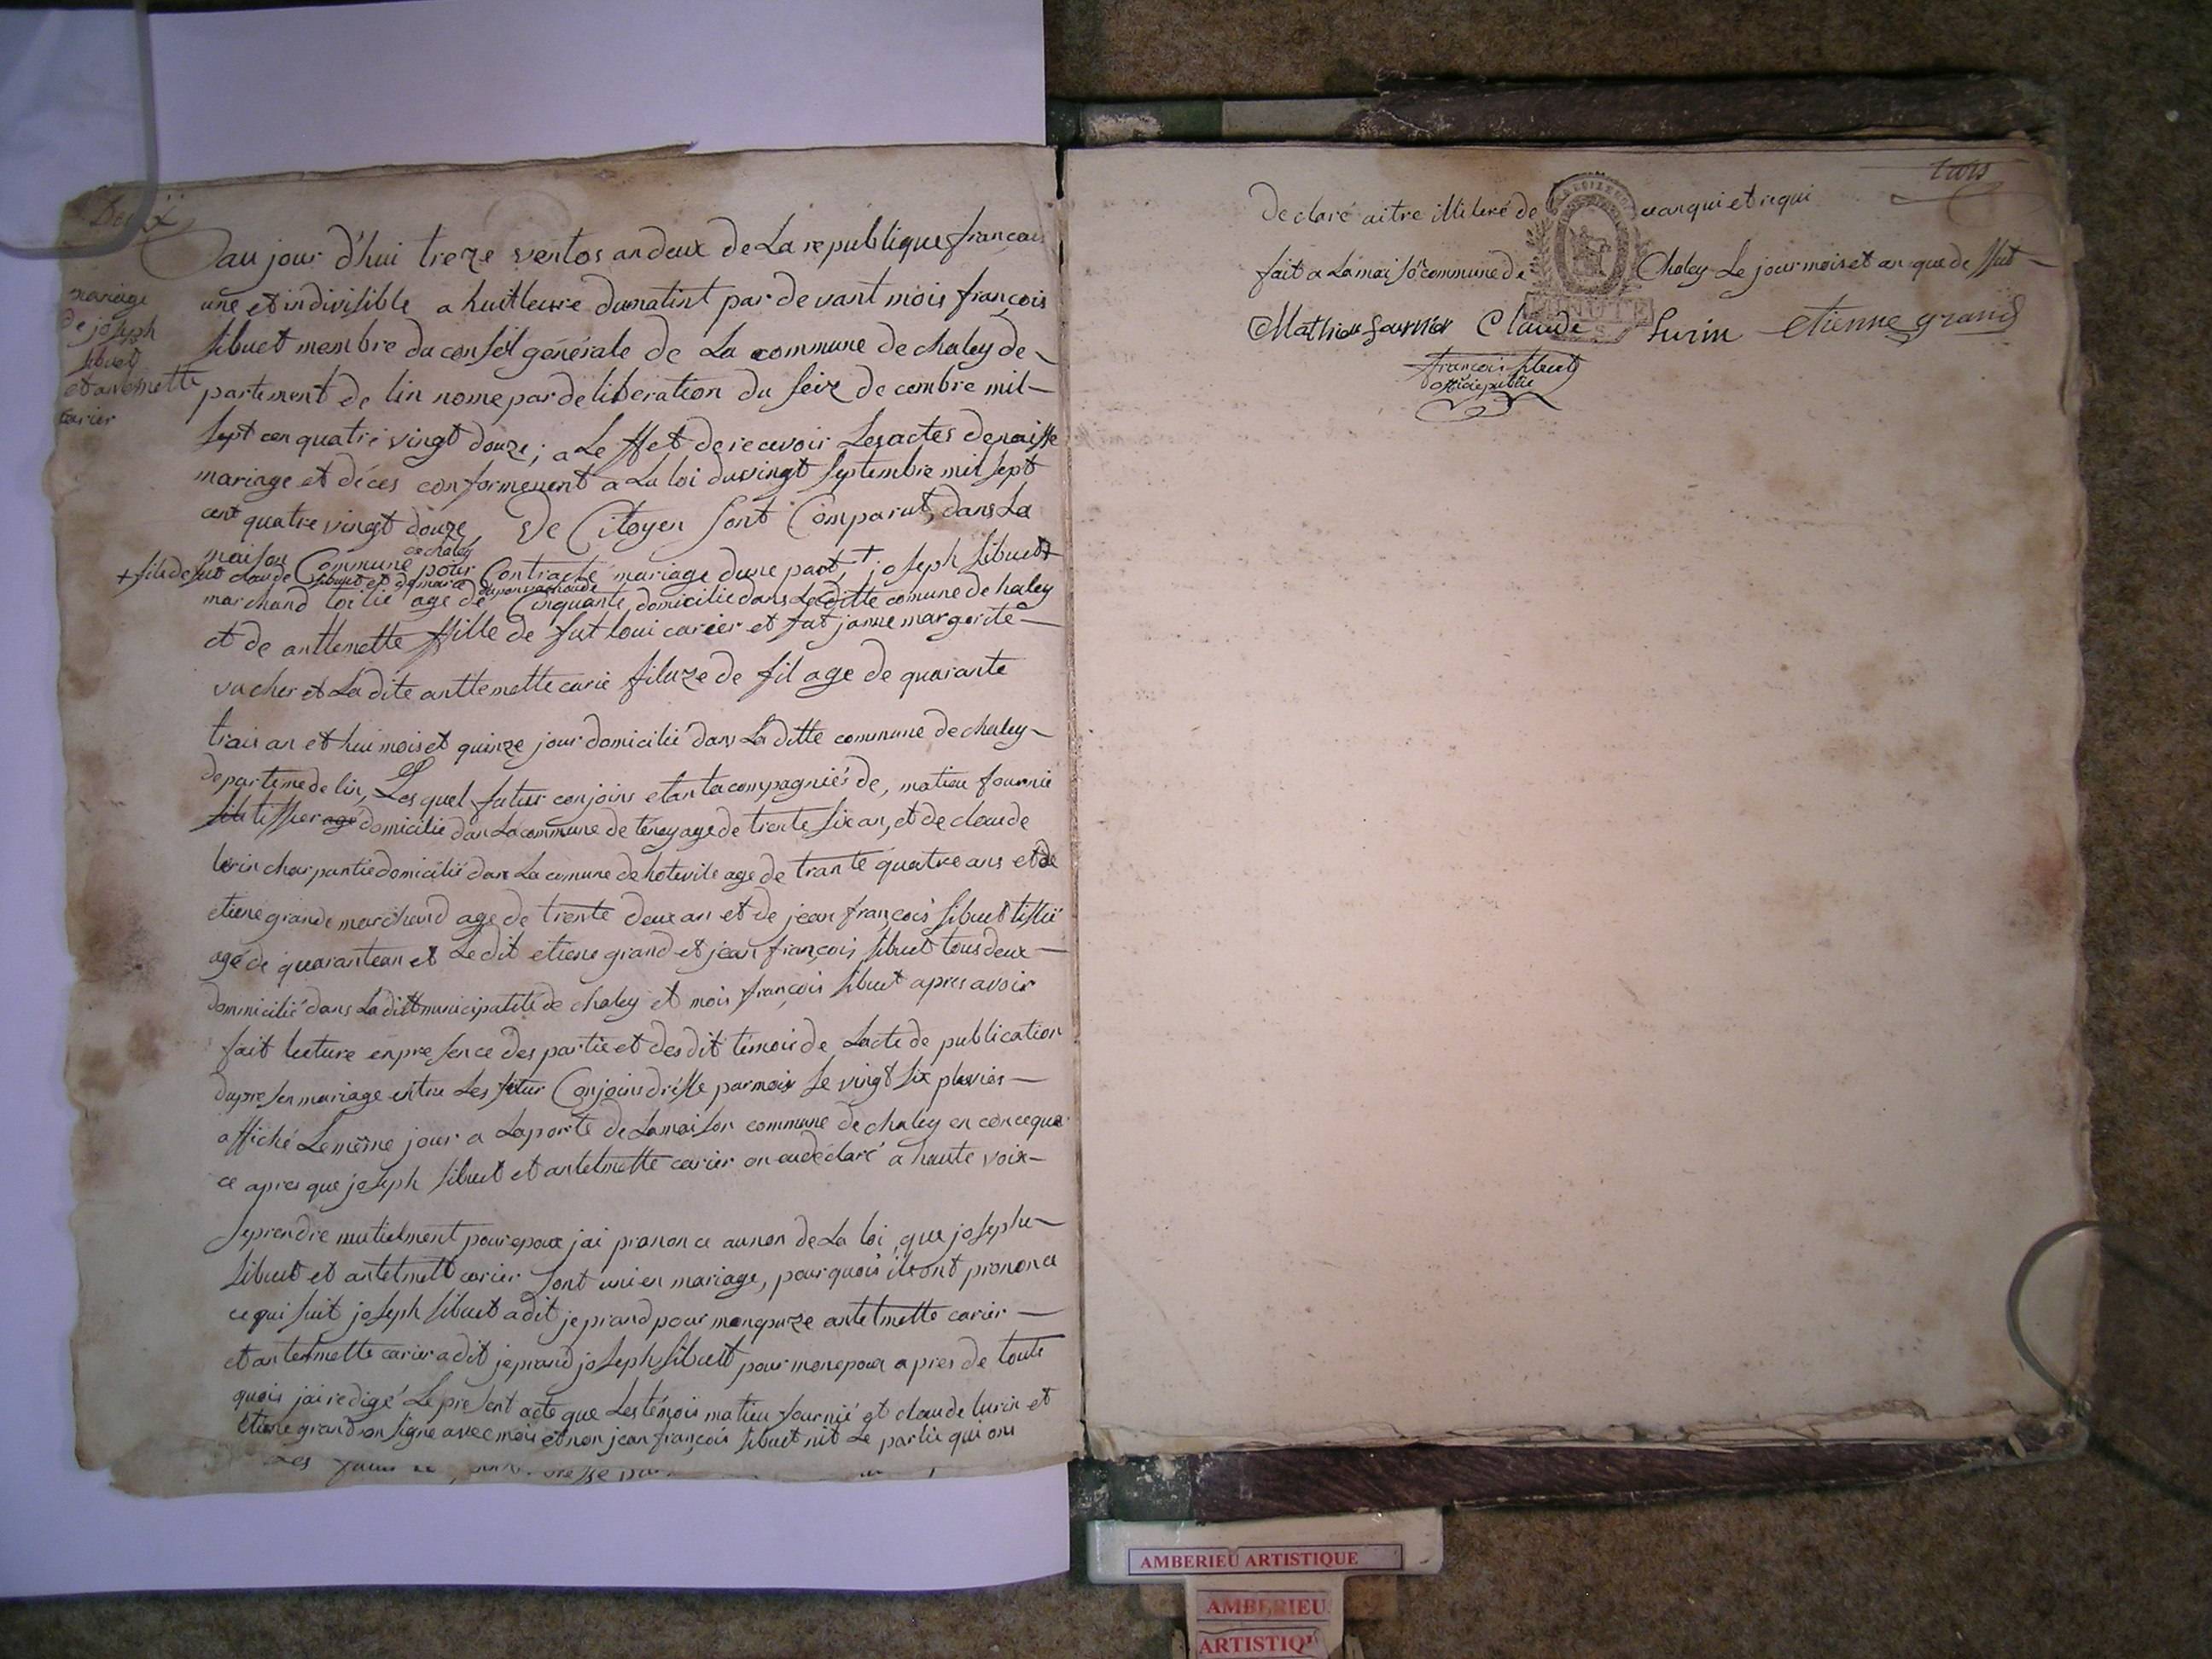 Deux
aujour d'hui treze ventos an deux de La republique francais
mariage
de joseph
sibuet
et antemette
carier
une et indivisible a huitleure dumatint par devant mois françois
sibuet membre du conseil générale de La commune de chaley de
partement de lin nome par deliberation du seize decembre mil
sept cen quatre vingt douze; a Leffet de recevoir Les actes de naisse
mariage et déces conformement a La loi du vingt septembre mil sept
cent quatre vingt douze, de Citoyen sont Comparut, dans La
maison Commune de chaley pour Contracté mariage dune part, + joseph sibuet
+ fils de fut claude sibuet et de marie
marchand toilié age de Cinquante domicilie dans La ditte comune de chaley
et de anttemette ffille de fut loui carier et fut janne margerite
vacher et La dite anttemette carie filuze de fil age de quarante
trais an et hui mois et quinze jour domicilié dans La ditte commune de chaley
departeme de lin, Les quel futur conjoins etant acompagniés de, matieu fournie
tissier age domicilie dan La commune de tenay age de trente six an, et de claude
lurin charpantie domicilié dans La comune de hotevile age de trante quatre ans et de
etiene grande marchand age de trente deux an et de jean françois sibuet tissié
agé de quarantean et Le dit etiene grand et jean françois sibuet tous deux
domicilié dans La ditt municipalité de chaley et mois françois sibuet apres avoir
fait lecture en presence des partie et des dit témoi de Lacte de publication
du presen mariage entre Les futur Conjoins dresse par mois Le vingt six pluvios
affiché Le même jour a La porte de La maison commune de chaley en conceque
ce apres que joseph sibuet et antelmette carier on ou déclaré a haute voix
se prendre mutuelment pour epoux jai prononce aunon de La loi, que joseph
sibuet et antelmett carier sont uni en mariage, pourquois ils ont prononce
ce qui suit joseph sibuet a dit je prand pour mon epouze antelmette carier
et antelmette carier a dit je prand joseph sibuet pour mon epoux apres de toute
quois jai redigé Le present acte que Les témois matieu fournié et claude lurin et
etiene grand on signe avec mois et non jean françois sibuet nit Le partie qui ons
trois
declaré aitre illiteré de ce anqui et requi
fait a La maisô commune de Chaley Le jour mois et an que de ssut
MINUTE
Mathieu fournier Claude Lurin etienne grand
francois sibuet
officie public
AMBERIEU ARTISTIQUE
AMBERIEU
ARTISTIQU